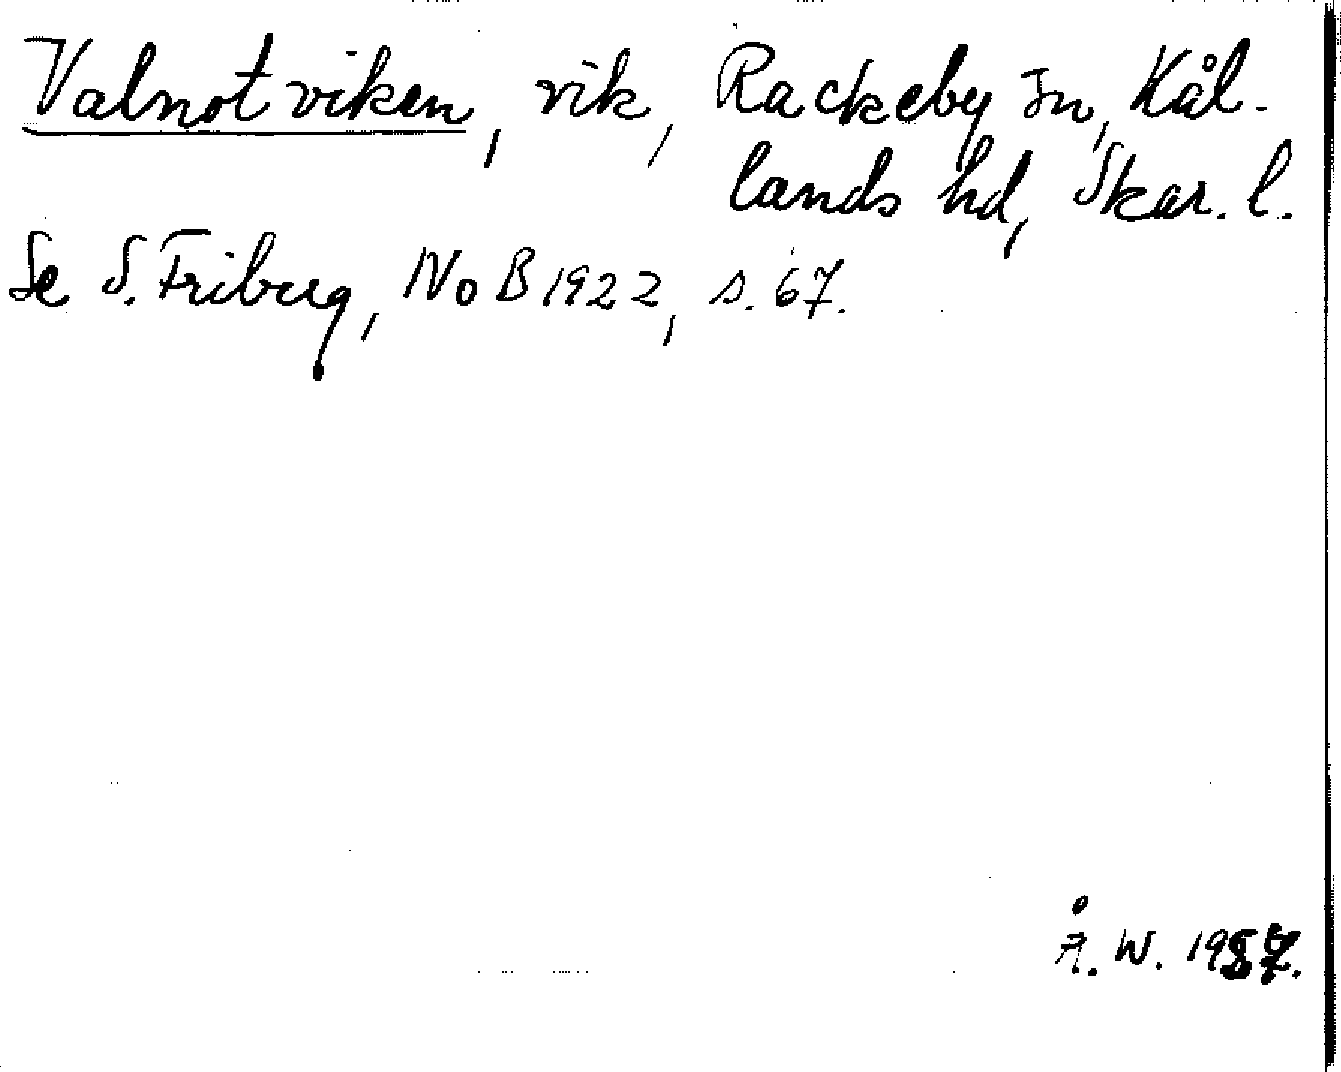 Valnotviken, vik, Rackeby sn, Kål-
lands hd, Skar. l.
Se S. Friberg, NoB 1922, s. 67.
Å. W. 1987.